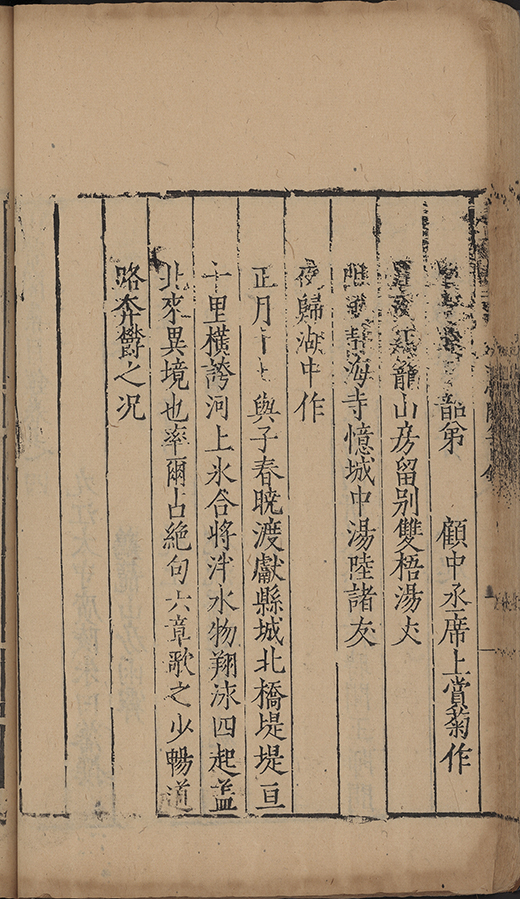 韶弟 顧中丞席上賞菊作
籠山房留别雙梧湯丈
海寺憶城中湯陸諸友
夜歸湖中作
正月 與子春曉渡獻縣城北橋堤堤亘
十里橫誇河上氷合將泮水物翔泳四起蓋
北來異境也率爾占絕句六章歌之少暢道
路奔欝之况